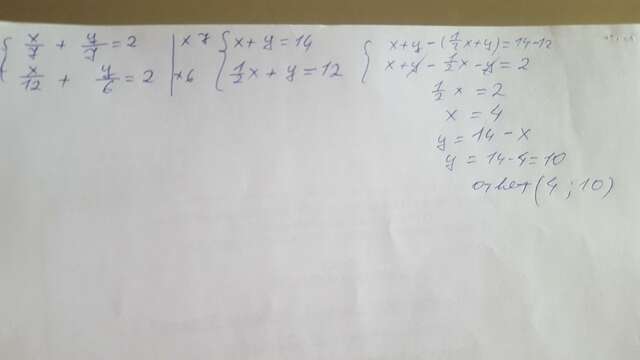 x/7 + y/7 = 2 | x 7 { x + y = 14
x/12 + y/6 = 2 | x 6 { 1/2x + y = 12
{ x+y-(1/2x+y)=14-12
x+y-1/2x-y=2
1/2x = 2
x = 4
y = 14-x
y = 14-4=10
ответ (4; 10)